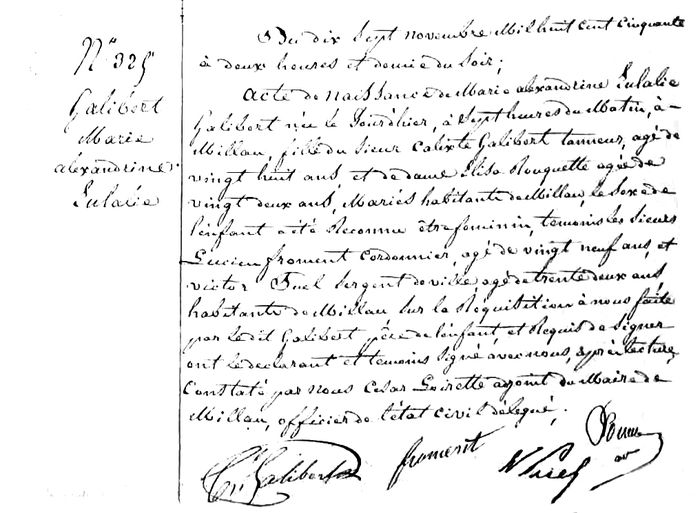 N° 325
Galibert
Marie
alexandrine
Eulalie
Du dix Sept novembre Mil huit cent cinquante
à deux heures et demie du Soir ;
acte de naissance de Marie alexandrine Eulalie
Galibert née le jour d'hier, à Sept heures du Matin, à
Millau, fille du Sieur Calixte Galibert tanneur, agé de
vingt huit ans, et de dame Elisa Rouquette agée de
vingt deux ans, Mariés habitants de Millau, le Sexe de
l'enfant a été Reconnu être feminin, temoins les Sieurs
Lucien froment Cordonnier, agé de vingt neuf ans, et
victor Fuel Sergent de ville, agé de trente deux ans
habitants de Millau Sur la Requisition à nous faite
par le dit Galibert, père de l'enfant, et Requis de Signer
ont le declarant et temoins Signé avec nous, après lecture,
Constaté par nous Cesar adjoint du Maire de
Millau, officier de l'état civil délégué ;
Galibert froment